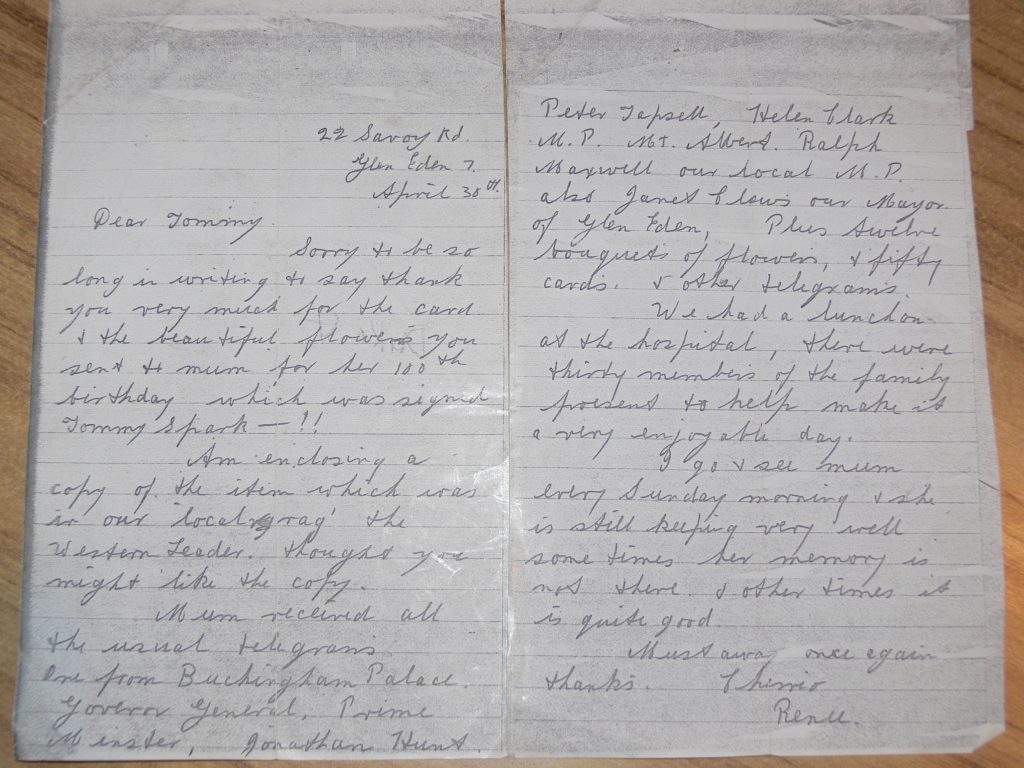 22 Savoy Rd.
Glen Eden 7.
April 30th.
Dear Tommy.
Sorry to be so
long in writing to say thank
you very much for the card
& the beautiful flowers you
sent to mum for her 100th
birthday which was signed
Tommy Spark — !!
Am enclosing a
copy of the item which was
in our 'local rag' the
Western Leader. thought you
might like the copy.
Mum received all
the usual telegrams
One from Buckingham Palace.
Goveror General, Prime
Minster, Jonathan Hunt.
Peter Tapsell, Helen Clark
M.P. Mt. Albert. Ralph
Maxwell our local M.P.
also Janet Clews our Mayor
of Glen Eden, Plus twelve
bouquets of flowers, & fifty
cards. & other telegrams.
We had a lunchon
at the hospital, there were
thirty members of the family
present to help make it
a very enjoyable day.
I go & see mum
every Sunday morning & she
is still keeping very well
some times her memory is
not there & other times it
is quite good.
Must away once again
thanks. Cherrio
Renee.